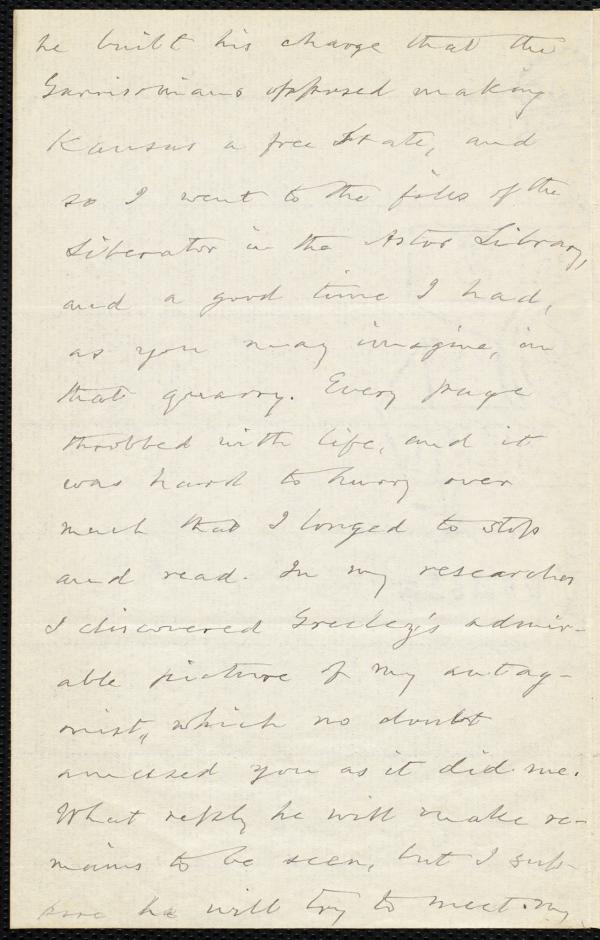 he built his charge that the
Garrisonians opposed making
Kansas a free State, and
so I went to the files of the
Liberator in the Astor Library,
and a good time I had,
as you may imagine, in
that quarry. Every page
throbbed with life, and it
was hard to hurry over
much that I longed to stop
and read. In my researches
I discovered Greeley's admir-
able picture of my antag-
onist, which no doubt
amused you as it did me.
What reply he will make re-
mains to be seen, but I sup-
pose he will try to meet my